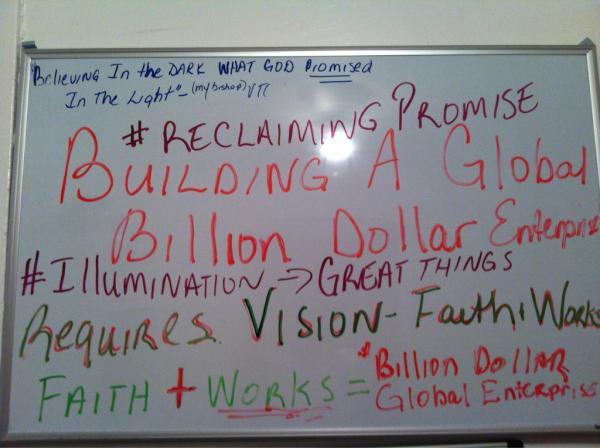 Believing In the DARK WHAT GOD Promised
In The Light" - (my bishop)
# RECLAIMING PROMISE
BUILDING A Global
Billion Dollar Enterprise
#IllUMINATION -> GREAT THINGS
Requires VISION - Faith + Works
FAITH + WORKS = "Billion DOLLAR
Global Enterprise